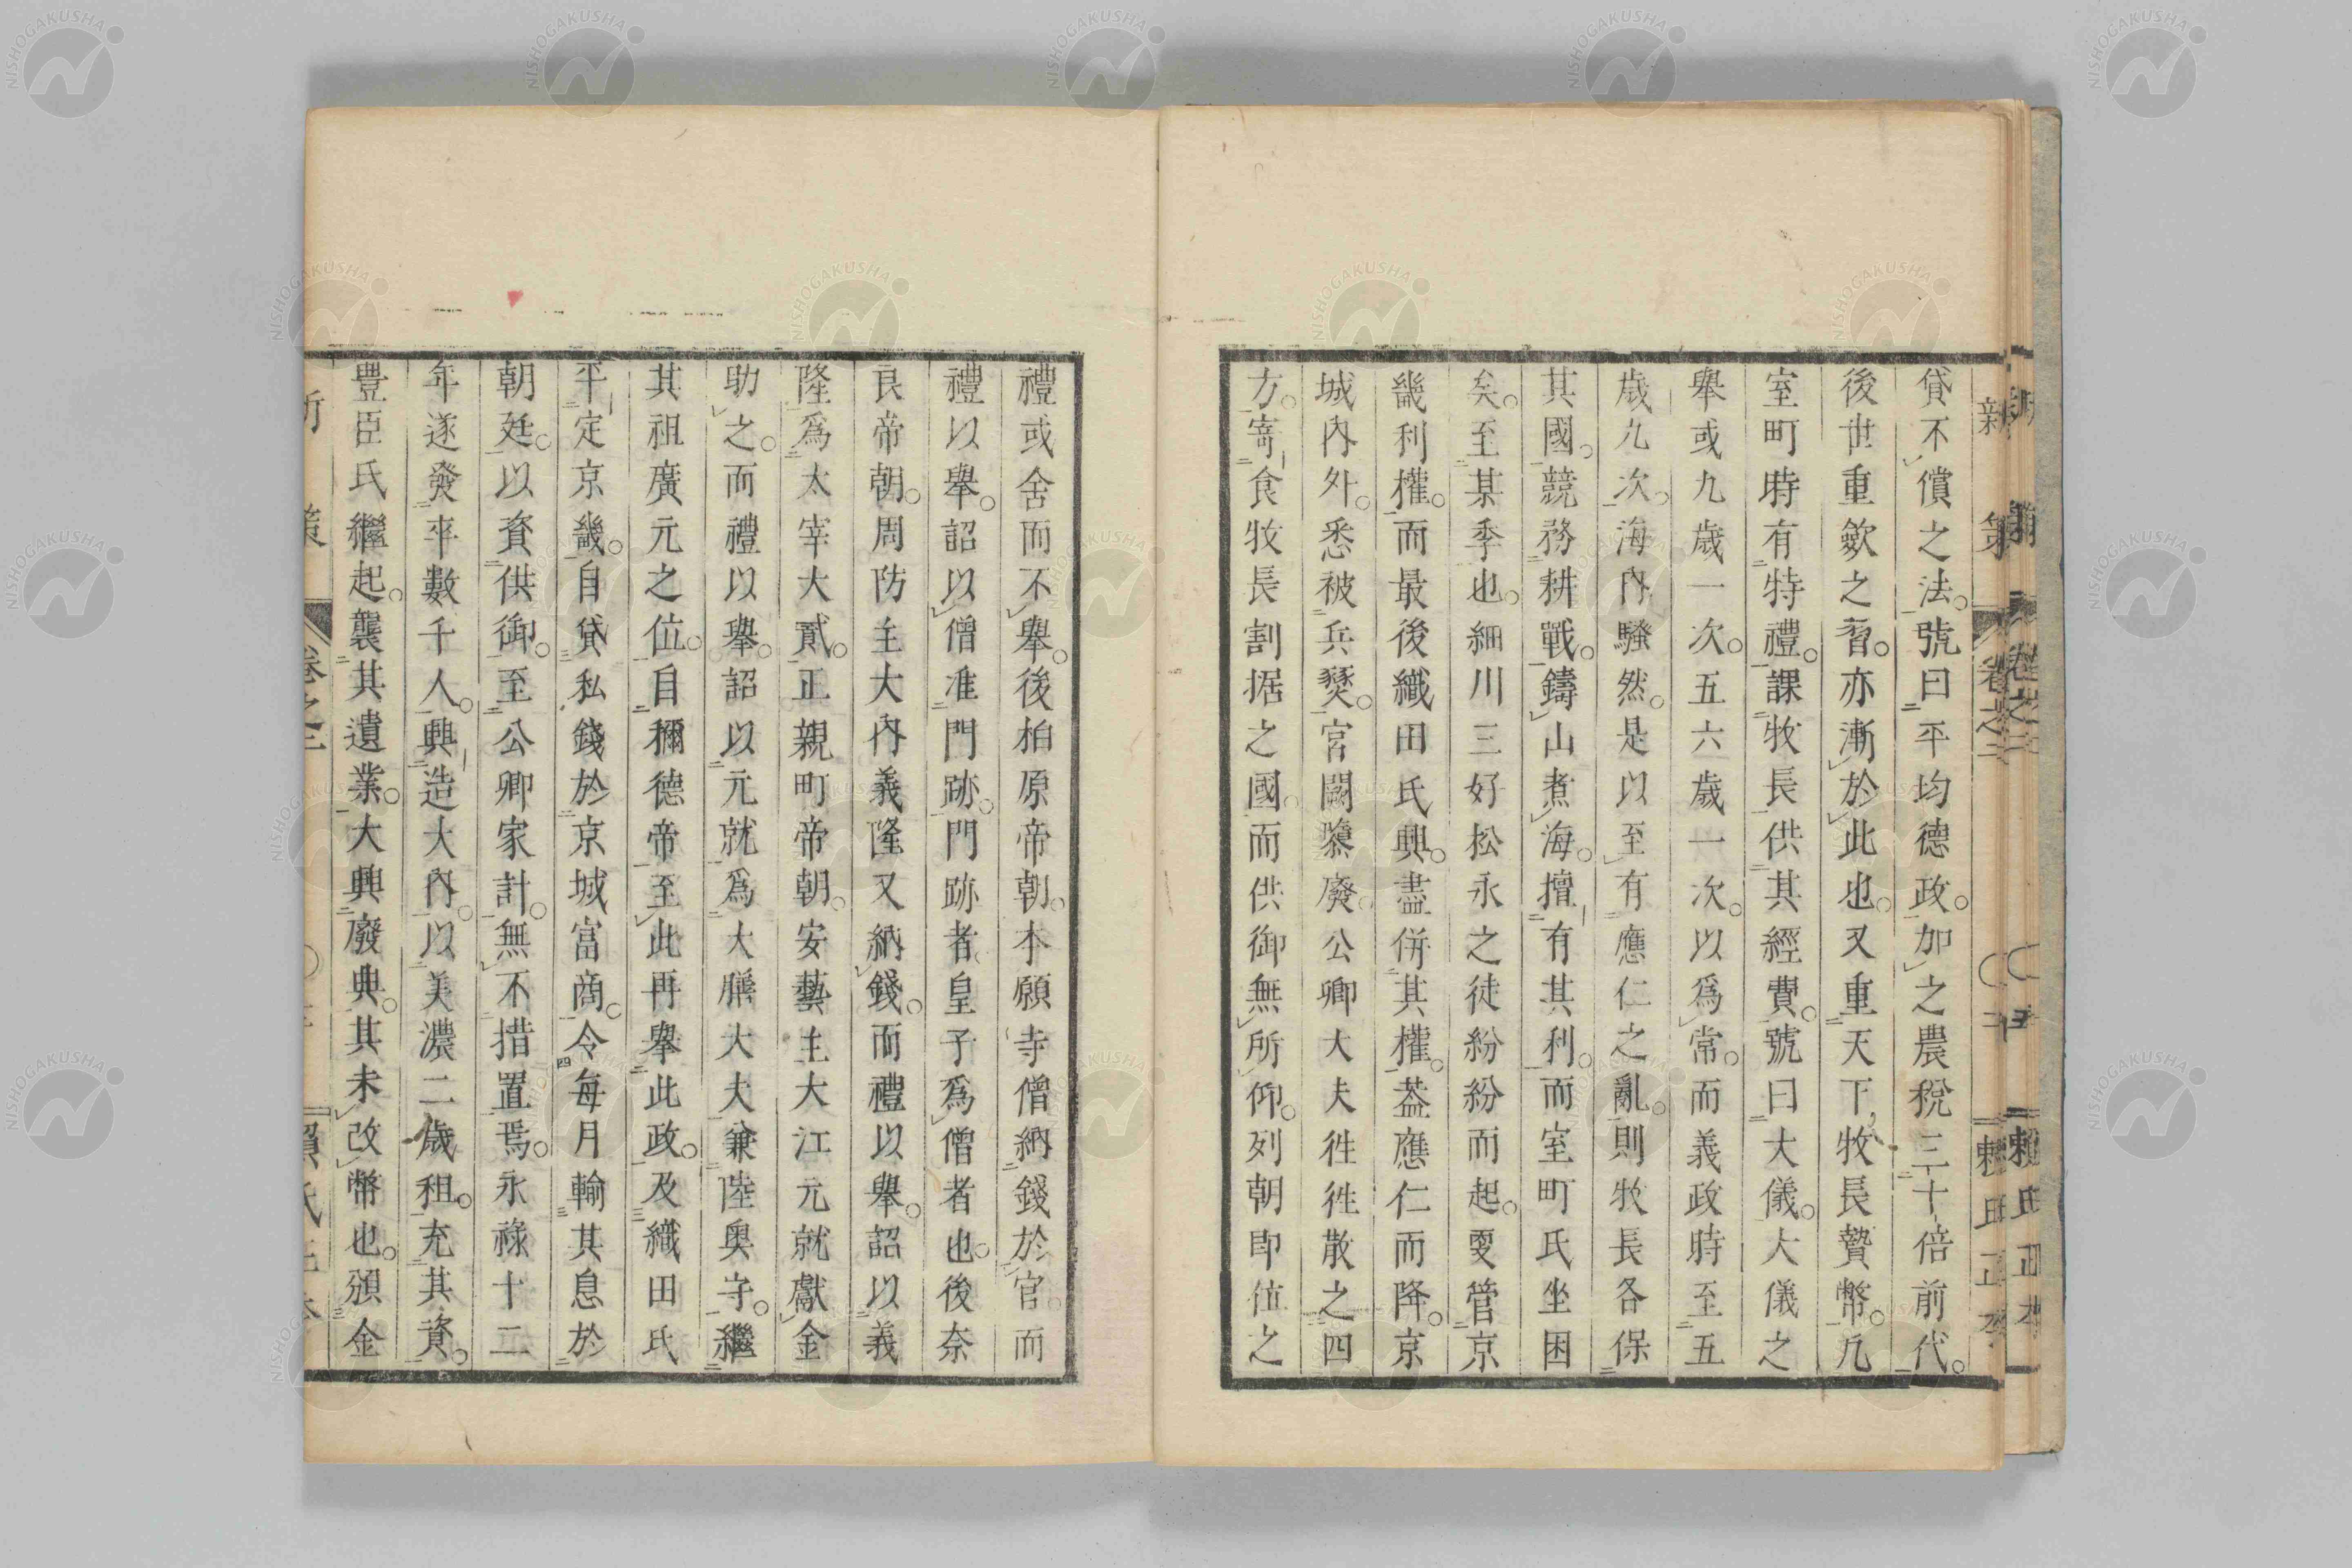 貸不償之法。號曰平均德政。加之農稅三十倍前代。
後世重歛之習。亦漸於此也。又重天下牧長贄幣。凡
室町時有特禮。課牧長供其經費。號曰大儀。大儀之
舉或九歲一次。五六歲一次。以爲常。而義政時至五
歲九次。海內騷然。是以至有應仁之亂。則牧長各保
其國。競務耕戰。鑄山煮海。擅有其利。而室町氏坐困
矣。至某季也。細川三好松永之徒紛紛而起。更管京
畿利權。而最後織田氏興。盡併其權。葢應仁而降。京
城內外。悉被兵燹。官闕隳廢。公卿大夫徃徃散之四
方。寄食牧長割据之國。而供御無所仰。列朝即位之
禮或舍而不舉。後柏原帝朝。本願寺僧納錢於官。而
禮以舉。詔以僧准門跡。門跡者。皇子爲僧者也。後奈
良帝朝。周防主大內義隆又納錢。而禮以舉。詔以義
隆爲太宰大貳。正親町帝朝。安藝主大江元就獻金
助之。而禮以舉。詔以元就爲大膳大夫兼陸奧守。繼
其祖廣元之位。自稱德帝至此再舉此政。及織田氏
平定京畿。自貸私錢於京城富商。令每月輸其息於
朝廷。以資供御。至公卿家計。無不措置焉。永祿十二
年遂發卒數千人。興造大內。以美濃二歲租。充其資。
豐臣氏繼起。襲其遺業。大興廢典。其未改幣也。頒金
新策
卷之二
賴氏正本
NISHOGAKUSHA